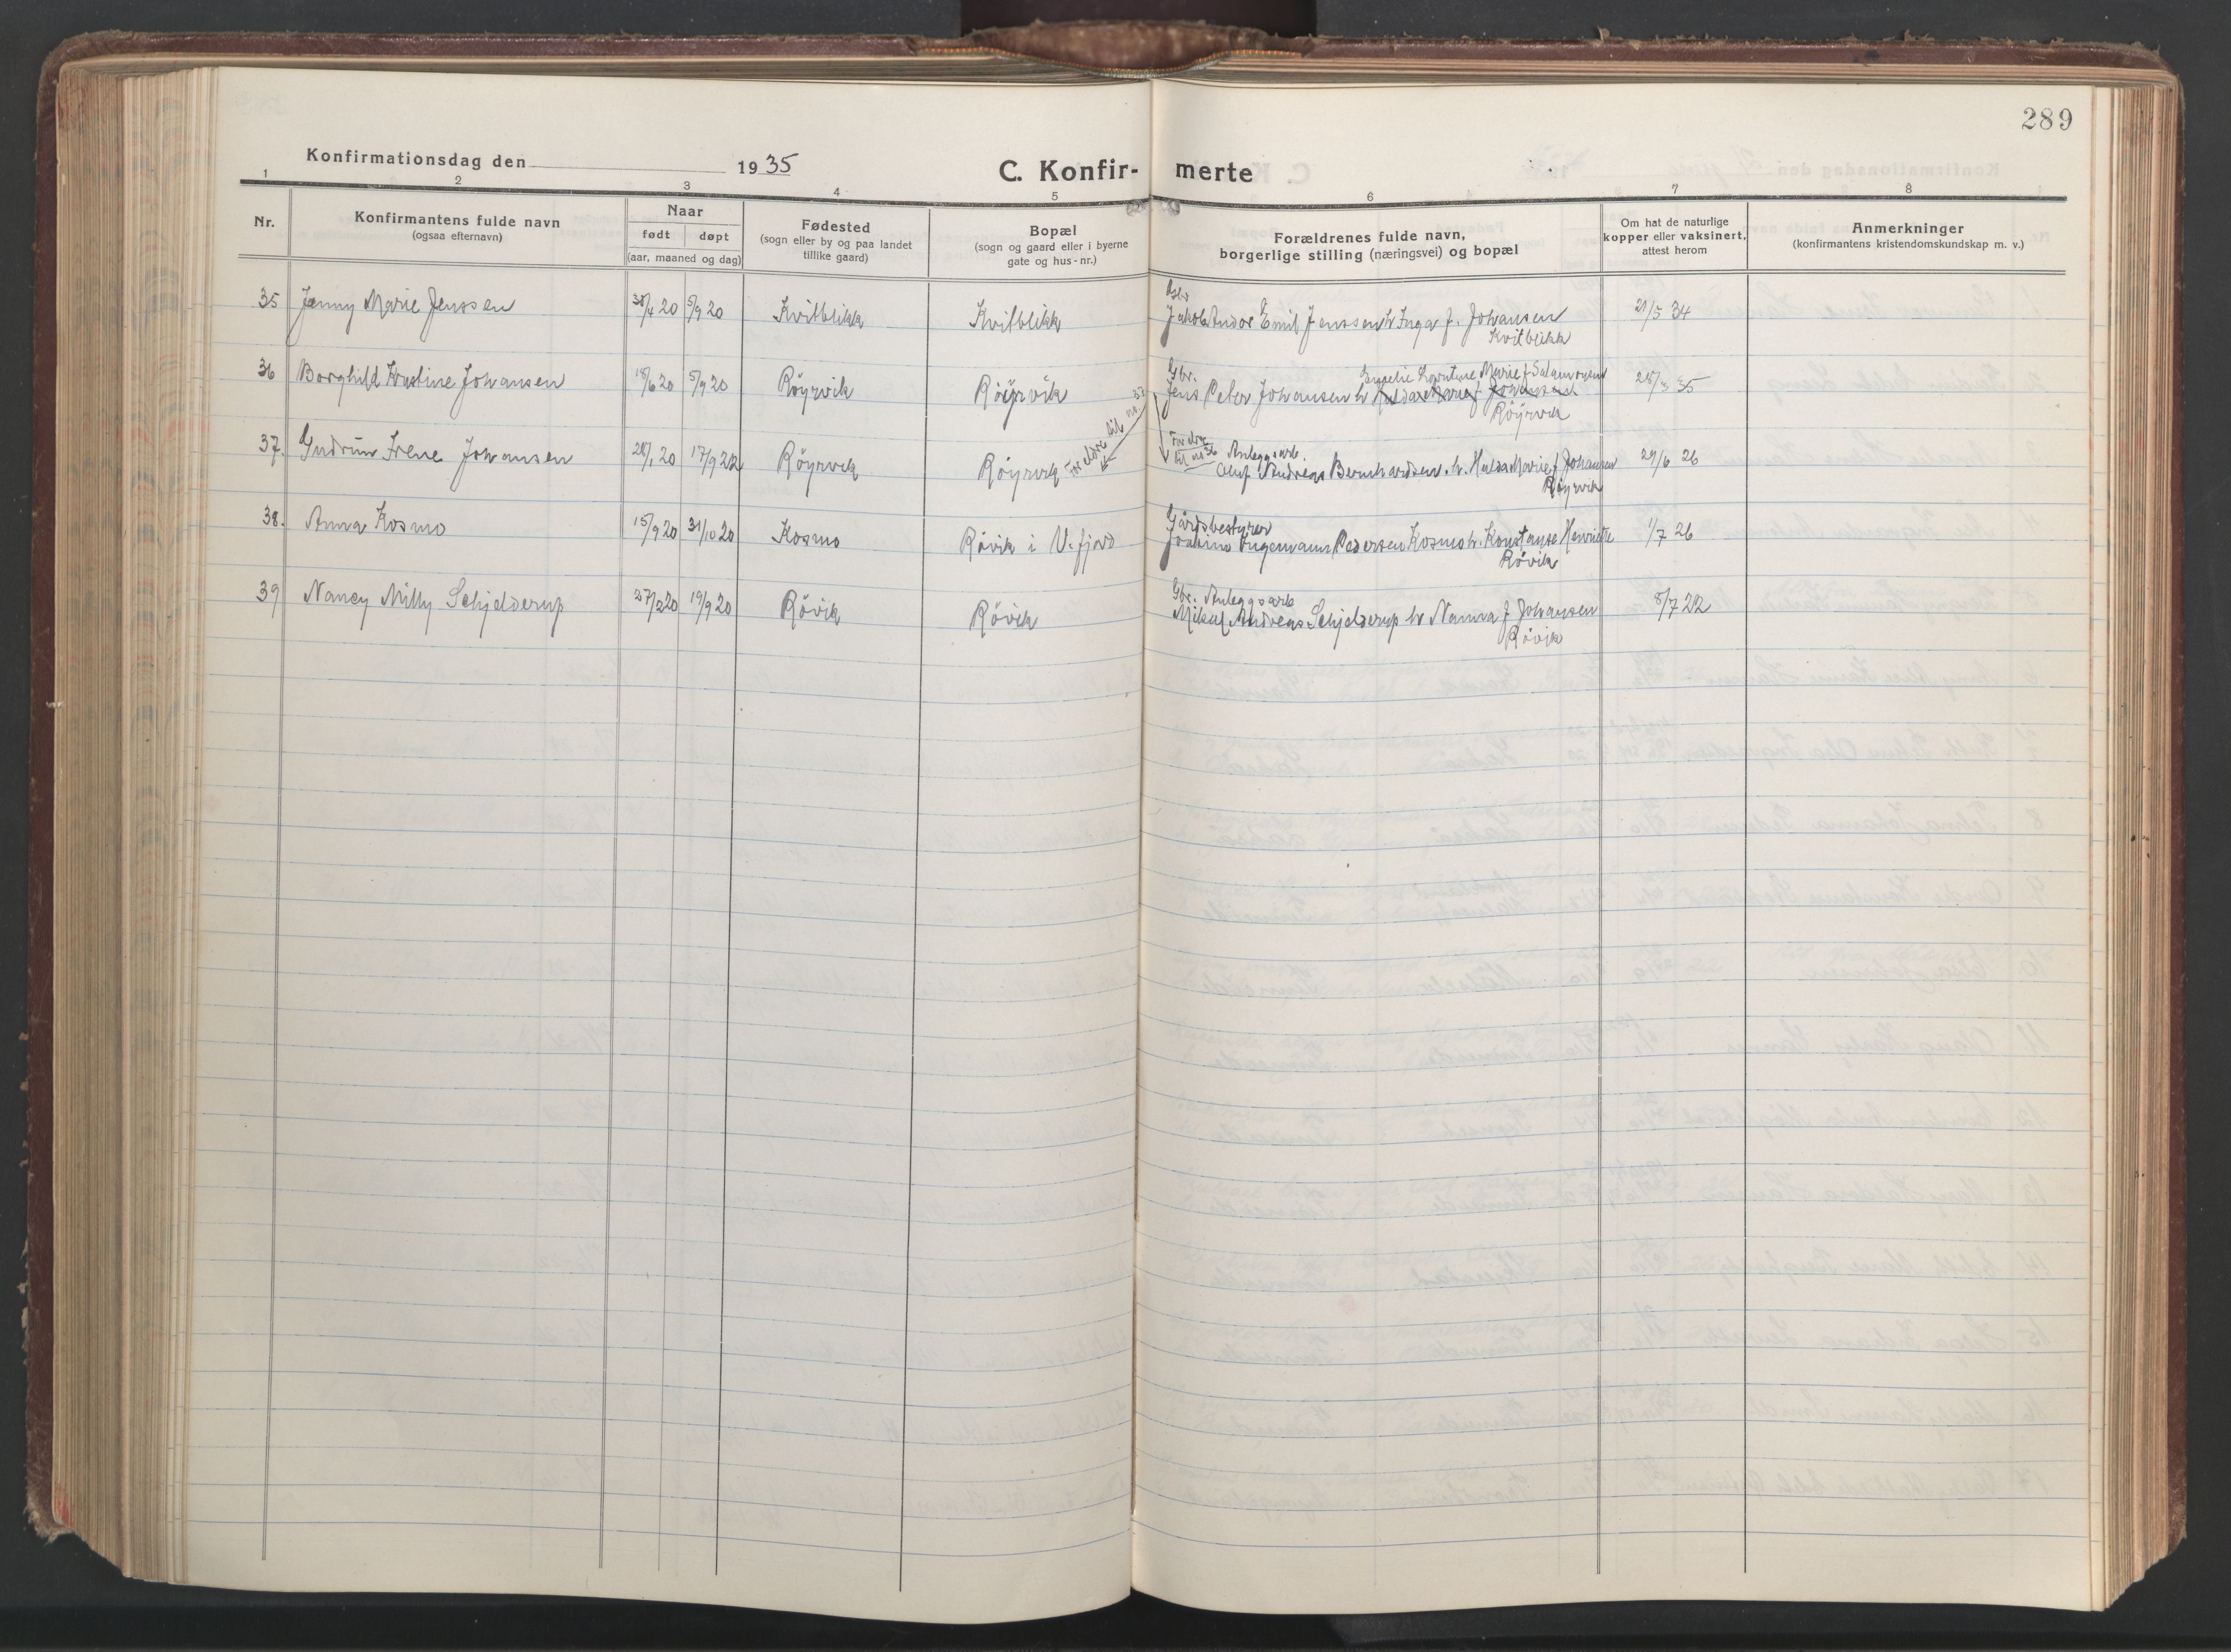 289
Konfirmationsdag den 1935
C. Konfir- merte
1 2 3 4 5 6 7 8
Nr.
Konfirmantens fulde navn
(ogsaa efternavn)
Naar
født døpt
(aar, maaned og dag)
Fødested
(sogn eller by og paa landet
tillike gaard)
Bopæl
(sogn og gaard eller i byerne
gate og hus-nr.)
Forældrenes fulde navn,
borgerlige stilling (næringsvei) og bopæl
Om hat de naturlige
kopper eller vaksinert,
attest herom
Anmerkninger
(konfirmantens kristendomskundskap m. v.)
35 Jenny Marie Jenssen /4 20 5/9 20 Kvitblikk Kvitblikk
Jakob Andor Emil Jenssen h Inga f. Johansen 21/5 34
Kvitblikk
36 Borghild Kristine Johansen 18/6 20 5/9 20 Röyrvik Röyrvik
Gbr. Marie f Salamonsen
Jens Peter Johansen h Hulda Marie f Johansen 28/3 35
Röyrvik
Foreldre til no 37
37. Gudrun Irene Johansen 28/1 20 17/9 22 Röyrvik Röyrvik
Foreldre
til no 36 Anleggsarb.
Oluf Andreas Bernhardsen. h. Hulda Marie f Johansen 29/6 26
Röyrvik
38. Anna Kosmo 15/9 20 31/10 20 Kosmo Rövik i V.fjord
Gårdsbestyrer
Joakim Ingemann Pedersen Kosmo h. Konstanse Henriette 1/7 26
Rövik
39 Nancy Milly Schjelderup 27/2 20 19/9 20 Rövik Rövik
Gbr. Anleggsarb
Mikal Andreas Schjelderup h Nanna f Johansen 8/7 22
Rövik